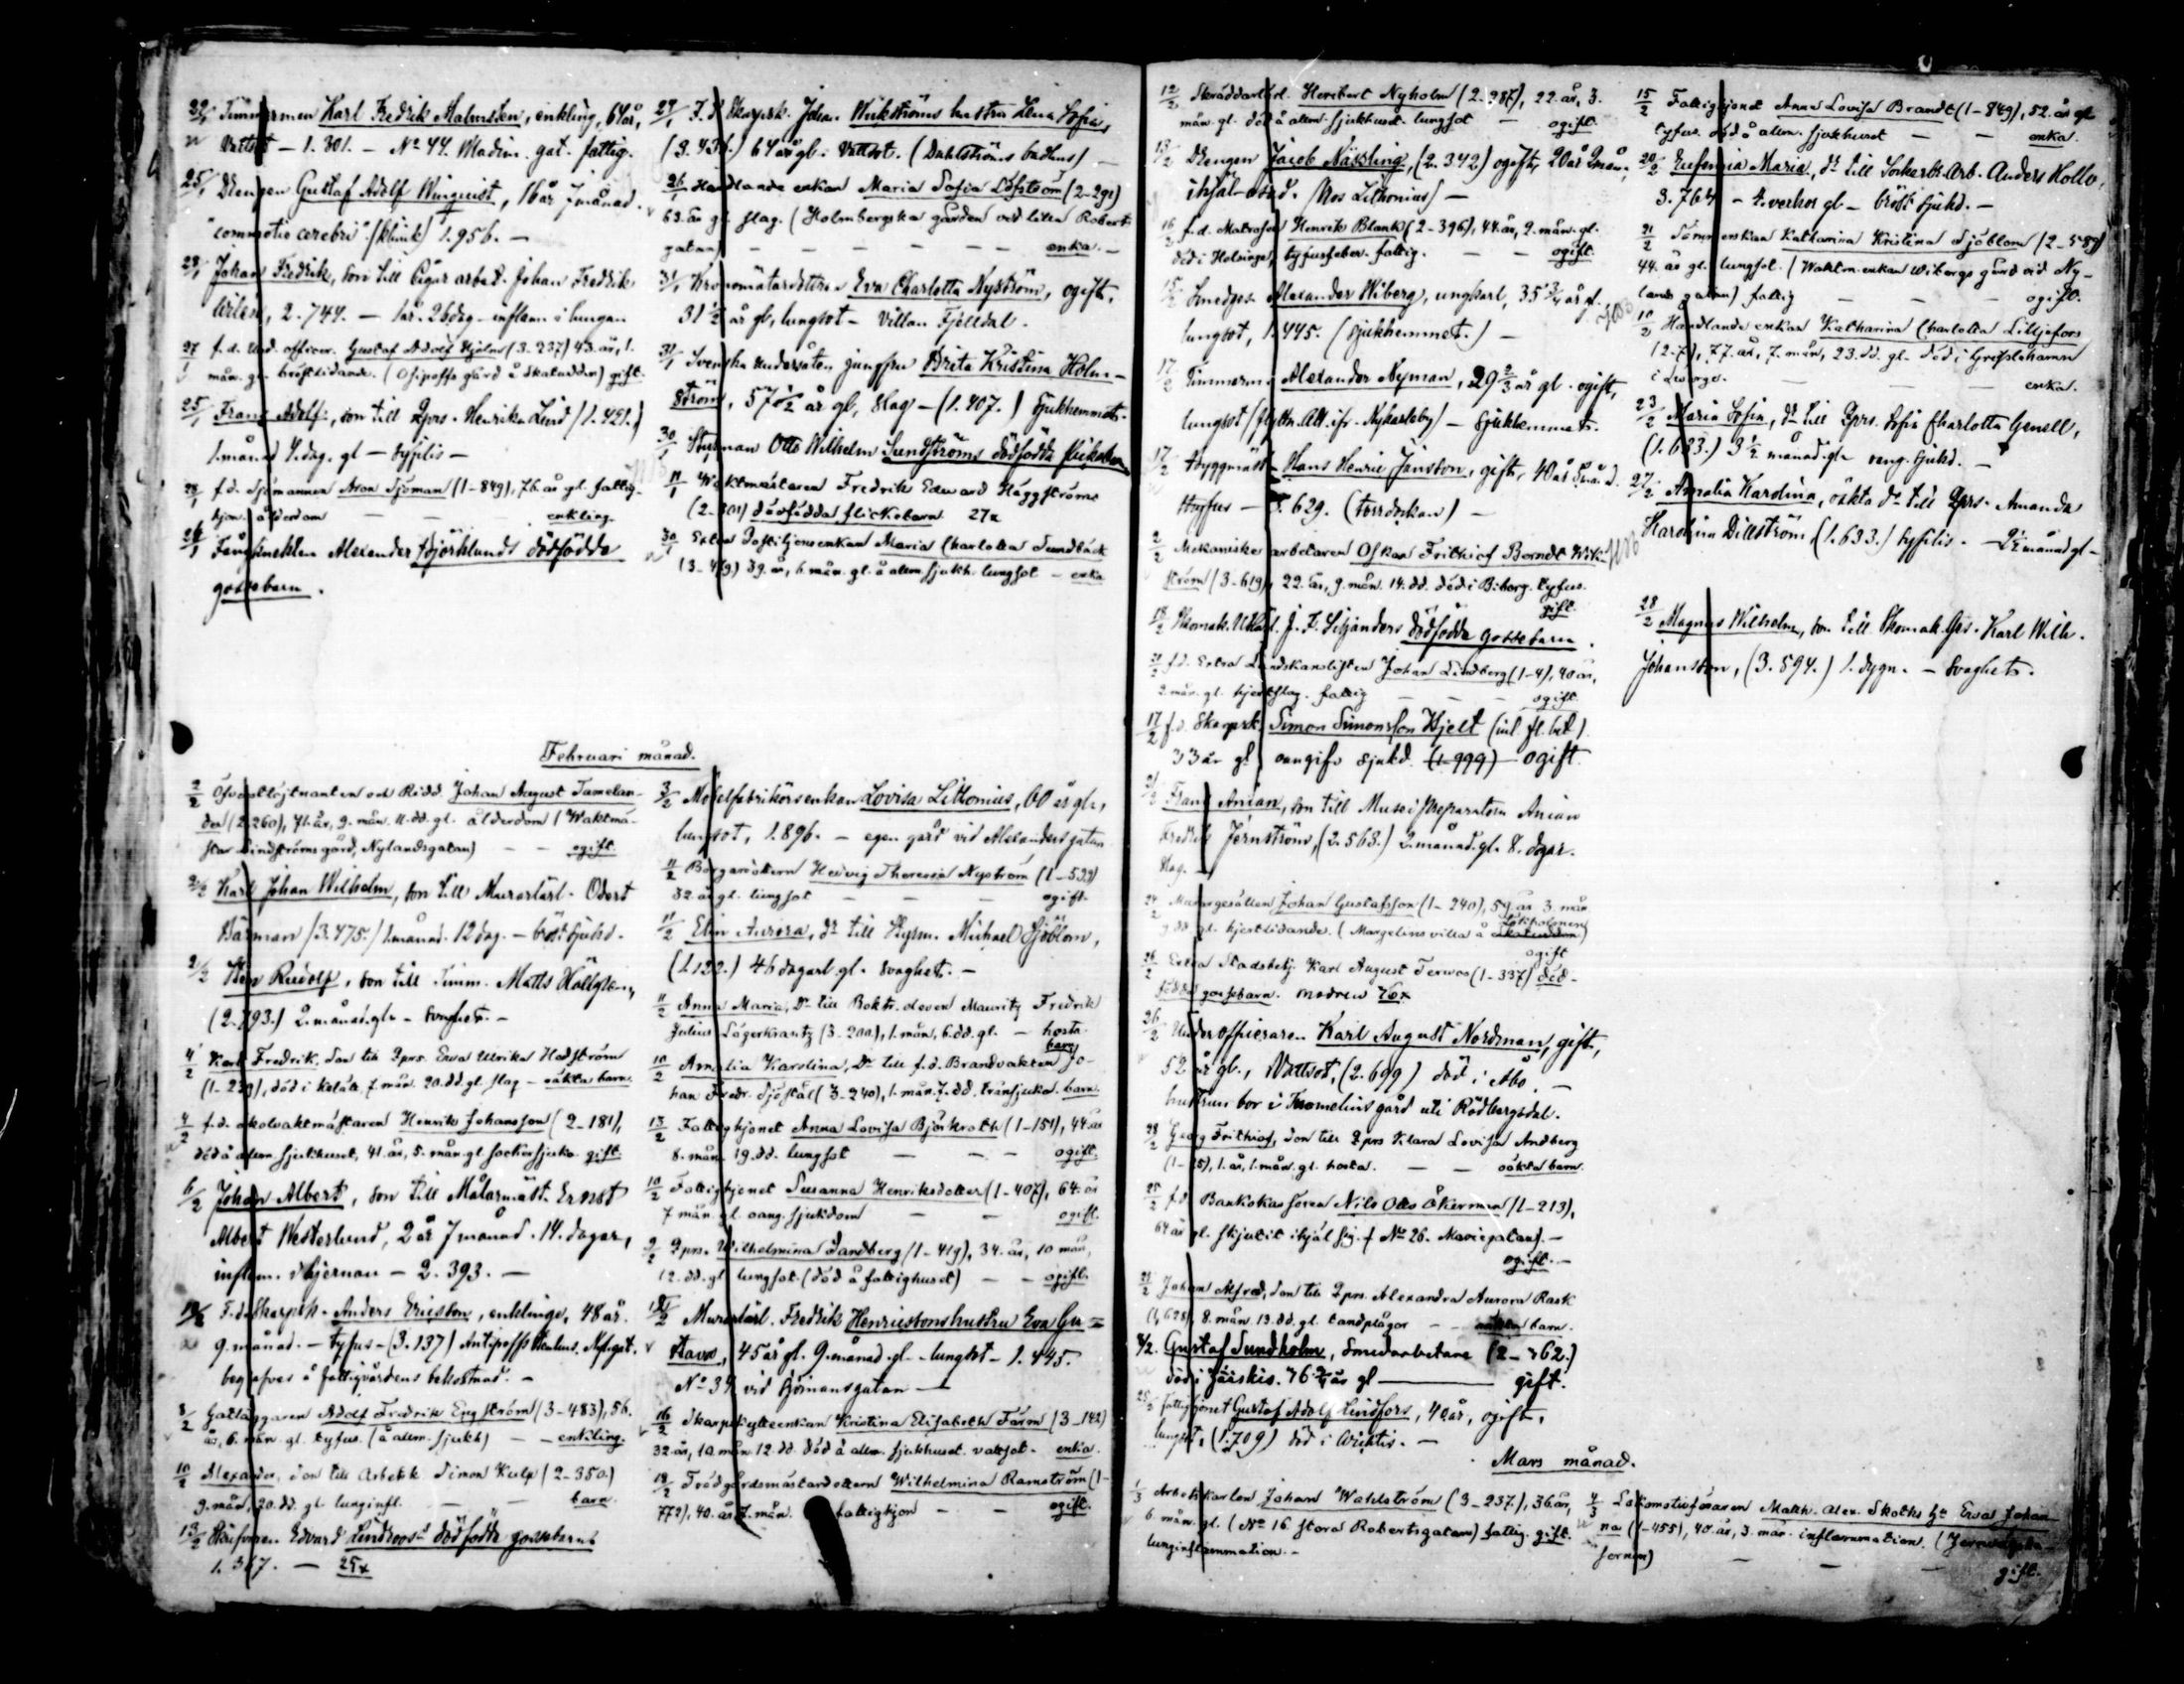 Timmerman Karl Fredrik Malmsten, enkling, 64 år,
Vattsot — 1. 301. — No 44. Madin. gat. fattig.
25/1 Drengen Gustaf Adolf Winquist, 16 år 7 månad.
"commotio cerebri" (klinik) 1. 956. —
28/1 Johan Fredrik, son till Cigar arbet. Johan Fredrik
2. 744. — 1 år. 26 dag. inflam. i lungan
27/1 f. d. Und. officer. Gustaf Adolf Hjelm (3-237) 43. år, 1.
mån. gl. bröstlidande. (Osipoffs gård å Skatudden) gift.
25/1 Frans Adolf, son till Qprs. Henrika Lind (1. 421.)
1 månad 4. dag. gl — syfilis —
28/1 f. d. Sjömannen Aron Sjöman (1-849), 76. år gl. fattig-
hjon. ålderdom — — — enkling.
Alexander Björklunds dödfödda
gossebarn.
F. d. Skarpsk. Johan Wikströms hustru Lena Sofia,
(3. 436.) 64 år gl. Vattsot. (Dahlströms badhus) —
26/1 Handlande enkan Maria Sofia Löfström (2-291)
63. år gl. slag. (Holmbergska gården vid lilla Roberts
gatan) — — — — — enka. —
31/1 Eva Charlotta Nyström, ogift,
31 1/2 år gl, lungsot — Villan Fjelldal.
31/1 Svenska undersåten jungfru Brita Kristina Holm-
ström, 57 1/2 år gl, slag — (1. 407.) Sjukhemmet.
30/1 Styrman Otto Wilhelm Sundströms dödfödda flickebarn
11/1 Waktmästaren Fredrik Edvard Häggströms
(2-301) dödfödda flickebarn 27x
30/1 Extra Postiljonsenkan Maria Charlotta Sundbäck
(3-479) 39. år, 6. mån. gl. å allm. sjukh. lungsot — enka
Februari månad.
2/2 Öfverstlöjtnanten och Ridd. Johan August Tamelan-
der (2-260), 71. år, 9. mån. 11. dd. gl. ålderdom (Waktmä-
star Lindströms gård, Nylandsgatan) — — ogift.
2/2 Karl Johan Wilhelm, son till Murarlärl. Odert
Bärman (3. 475.) 1 månad. 12 dag. — bröstsjukd.
2/2 Sten Rudolf, son till Timm. Matts Hällgren,
(2. 793.) 2. månad. gl. — svaghet. —
4/2 Karl Fredrik, Son till Qprs. Eva Ulrika Hedström
(1-239), död i Kelälä, 7. mån. 20. dd. gl. slag — oäkta barn.
4/2 f. d. skolvaktmästaren Henrik Johansson (2-181),
död å allm. sjukhuset, 41. år, 5. mån. gl. sockersjuka. gift.
6/2 Johan Albert, son till Målarmäst. Ernst
Albert Westerlund, 2 år 7 månad. 14. dagar,
inflam. i hjernan — 2. 393. —
F. d. Skarpsk. Anders Ericsson, enkling, 48 år.
9. månad. — tyfus — (3. 137) Antipoffs Nyl.gat.
begrafves å fattigvårdens bekostnad. —
8/2 Adolf Fredrik Engström (3-483), 56.
år, 6. mån. gl. tyfus. (å allm. sjukh) — — enkling.
10/2 Alexander, son till Arbetsk. Simon Kulp (2-350)
9. mån, 20. dd. gl. lunginfl. — — barn.
13/2 Edvard Lindroos' dödfödda gossebarn
1. 367. — 25x
3/2 Möbelfabrikörsenkan Lovisa Litonius, 60 år gl.,
lungsot, 1. 896. — egen gård vid Alexandersgatan
11/2 Borgaredottern Hedvig Theresia Nyström (1-522)
32. år gl. lungsot — — — ogift.
11/2 Elin Aurora, dr. till Styrm. Michael Sjöblom,
(1. 122.) 46 dagar gl. svaghet. —
11/2 Anna Maria, Dr. till Boktr. eleven Mauritz Fredrik
Julius Lagerkrantz (3-200), 1. mån, 6. dd. gl. — hosta.
barn
10/2 Amalia Karolina, Dr. till f. d. Brandvakten Jo-
han Fredr. Sjöstål (3-240), 1. mån. 7. dd. bränsjuka. barn.
13/2 Fattighjonet Anna Lovisa Björkroth (1-151), 44 år
8. mån. 19. dd. lungsot — — — ogift.
10/2 Fattighjonet Susanna Henriksdotter (1-407), 64. år
7 mån. gl. oang. sjukdom — — ogift.
9/2 Qprs. Wilhelmina Sandberg (1-419), 34. år, 10 mån,
12. dd. gl. lungsot. (död å fattighuset) — — ogift.
Murarlärl. Fredrik Henricsons hustru Eva Gu-
stava, 45 år gl. 9. månad gl. — lungsot — 1. 445.
No 34 vid Björnansgatan —
16/2 Skarpskytteenkan Kristina Elisabeth Färm (3-142)
32. år, 10. mån. 12. dd. död å allm. sjukhuset. vattsot. enka.
18/2 Trädgårdsmästaredottern Wilhelmina Ramström (1-
772), 40. år 7. mån. fattighjon — — ogift.
12/2 Skräddarlärl. Heribert Nyholm (2-987), 22. år, 3.
mån. gl. död å allm. sjukhuset. lungsot — ogift.
13/2 Drengen Jacob Näsling, (2. 342.) ogift, 20 år 9 mån.
(hos Lithonius) —
16/2 f. d. Matrosen Henrik Blank (2-396), 44. år, 2. mån. gl.
död i Helsinge, tyfusfeber. fattig. — — ogift.
15/2 Smedges. Alexander Wiberg, ungkarl, 35 3/4 år gl.
lungsot, 1. 445. (sjukhemmet.) —
17/2 Timmerm. Alexander Nyman, 29 2/3 år gl. ogift,
lungsot (flyttn. att. ifr. Nykarleby) — Sjukhemmet.
17/2 Byggmäst. Hans Henric Jansson, gift, 40 år 5 månd.
Tyfus — 3. 629. (torrdockan) —
2/2 Mekaniske arbetaren Oskar Frithiof Berndt Wik-
ström (3-619), 22. år, 9. mån. 14. dd. död i Biborg. tyfus.
gift.
18/2 J. F. Liljanders dödfödda gossebarn.
21/2 f. d. Extra Landskanslisten Johan Lindberg (1-4), 40 år,
2 mån. gl. hjertslag. fattig — — — ogift.
17/2 f. d. Skarpsk. Simon Simonsson Hjelt (inl. fl. bet.)
33 år gl. oangifv. sjukd. (1-999) ogift.
Frans Anian, son till Musei Preparatorn Anian
Fredrik Jernström, (2. 563.) 2. månad. gl. 8. dagar.
slag. —
24/2 Muraregesällen Johan Gustafsson (1-240), 54. år 3. mån
9 dd. gl. hjertlidande. (Margelins villa å Skatudden)
ogift
26/2 Extra Stadsbetj. Karl August Terwos (1-337) död-
född gossebarn. modren 26x
26/2 Underofficeraren Karl August Nordman, gift,
52 år gl., Vattsot, (2. 699) död i Åbo. —
hustrun bor i Tuomelius gård uti Rödbergsdal.
28/2 Georg Frithiof, son till Qprs. Klara Lovisa Andberg
(1-25), 1. år, 1. mån. gl. hosta. — — oäkta barn.
25/2 f. d. Bankokassören Nils Otto Åkerman (1-213),
64 år gl. skjutit ihjäl sig. (No 26. Mariegatan). —
ogift. —
21/2 Johan Alfred, son till Qprs. Alexandra Aurora Rask
(1, 628), 8. mån. 13. dd. gl. tandplågor — — oäkta barn.
Gustaf Sundholm, Smedarbetare (2-762.)
död i 76 3/4 år gl — gift.
25/2 Fattighjonet Gustaf Adolf Lindfors, 40 år, ogift,
lungsot, (1. 709) död i Wichtis. —
Mars månad.
1/3 Arbetskarlen Johan Wahlström (3-237), 36. år,
6. mån. gl. (No 16 stora Robertsgatan) fattig. gift.
lunginflammation. —
15/2 Fattighjonet Anna Lovisa Brandt (1-849), 52. år gl
tyfus. död å allm. sjukhuset — — enka.
20/2 Eufemia Maria, dr. till Sockerbr.arb. Anders Hollo,
3. 764 — 4. veckor gl — bröst sjukd. —
21/2 Katharina Kristina Sjöblom (2-589)
44. år gl. lungsot. (Waktm. enkan Wibergs gård vid Ny-
lands gatan) fattig — — — ogift.
10/2 Handlande enkan Katharina Charlotta Liljefors
(2-7), 77. år, 7. mån, 23. dd. gl. död i Grislehamn
i Sverge. — — — enka.
23/2 Maria Sofia, dr. till Qprs. Sofia Charlotta Genell,
(1. 633.) 3 1/2 månad. gl. sjukd. —
27/2 Amalia Karolina, oäkta dr. till Qprs. Amanda
Karolina Dillström, (1. 633.) syfilis. — 2 1/2 månad gl —
28/2 Magnus Wilhelm, son till Karl Wilh.
Johansson, (3. 594.) 1. dygn. — Svaghet.
4/3 Lokomotivföraren Matth. Alex. Skoths hu Eva Johan
na (1-455), 40. år, 3. mån. inflammation. (
— — — gift.